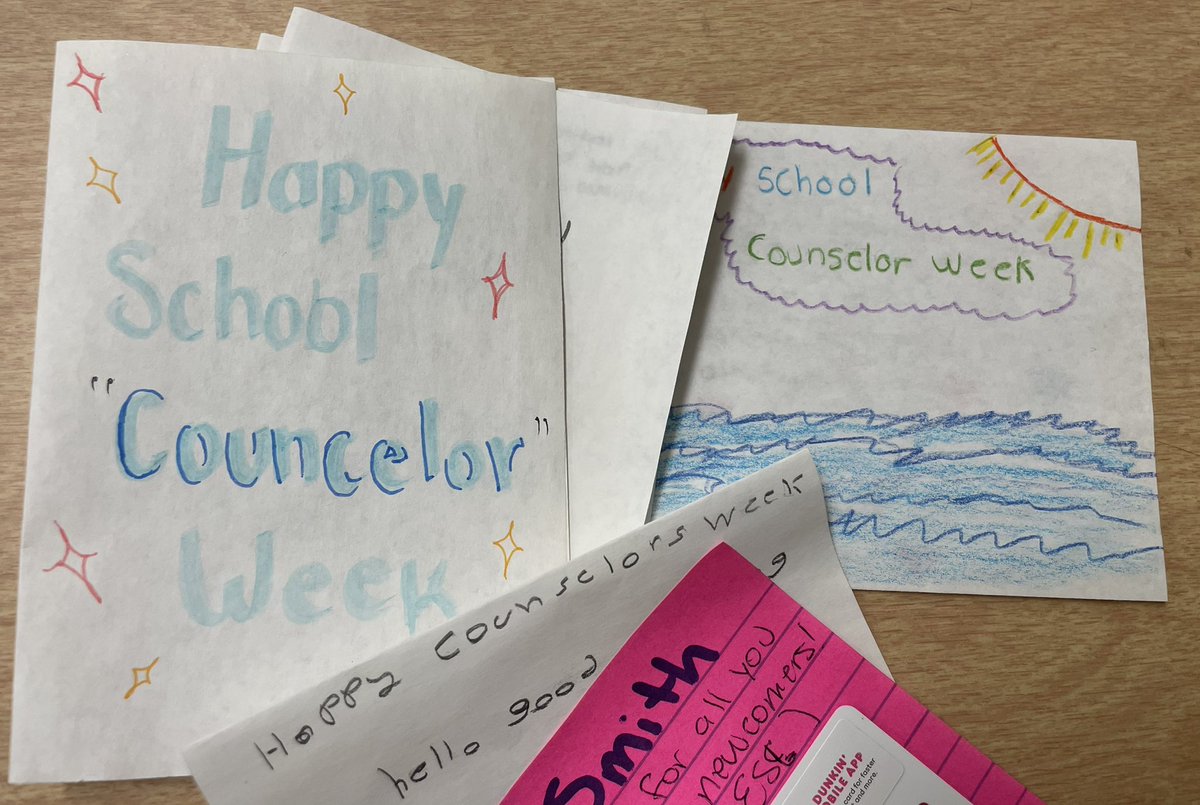 Happy
School
"Councelor"
Week
School
Counselor Week
Happy Counselors Week
hello good
Smith
for all you
newcomers!
ESL
DUNKIN'
card for faster
and more.